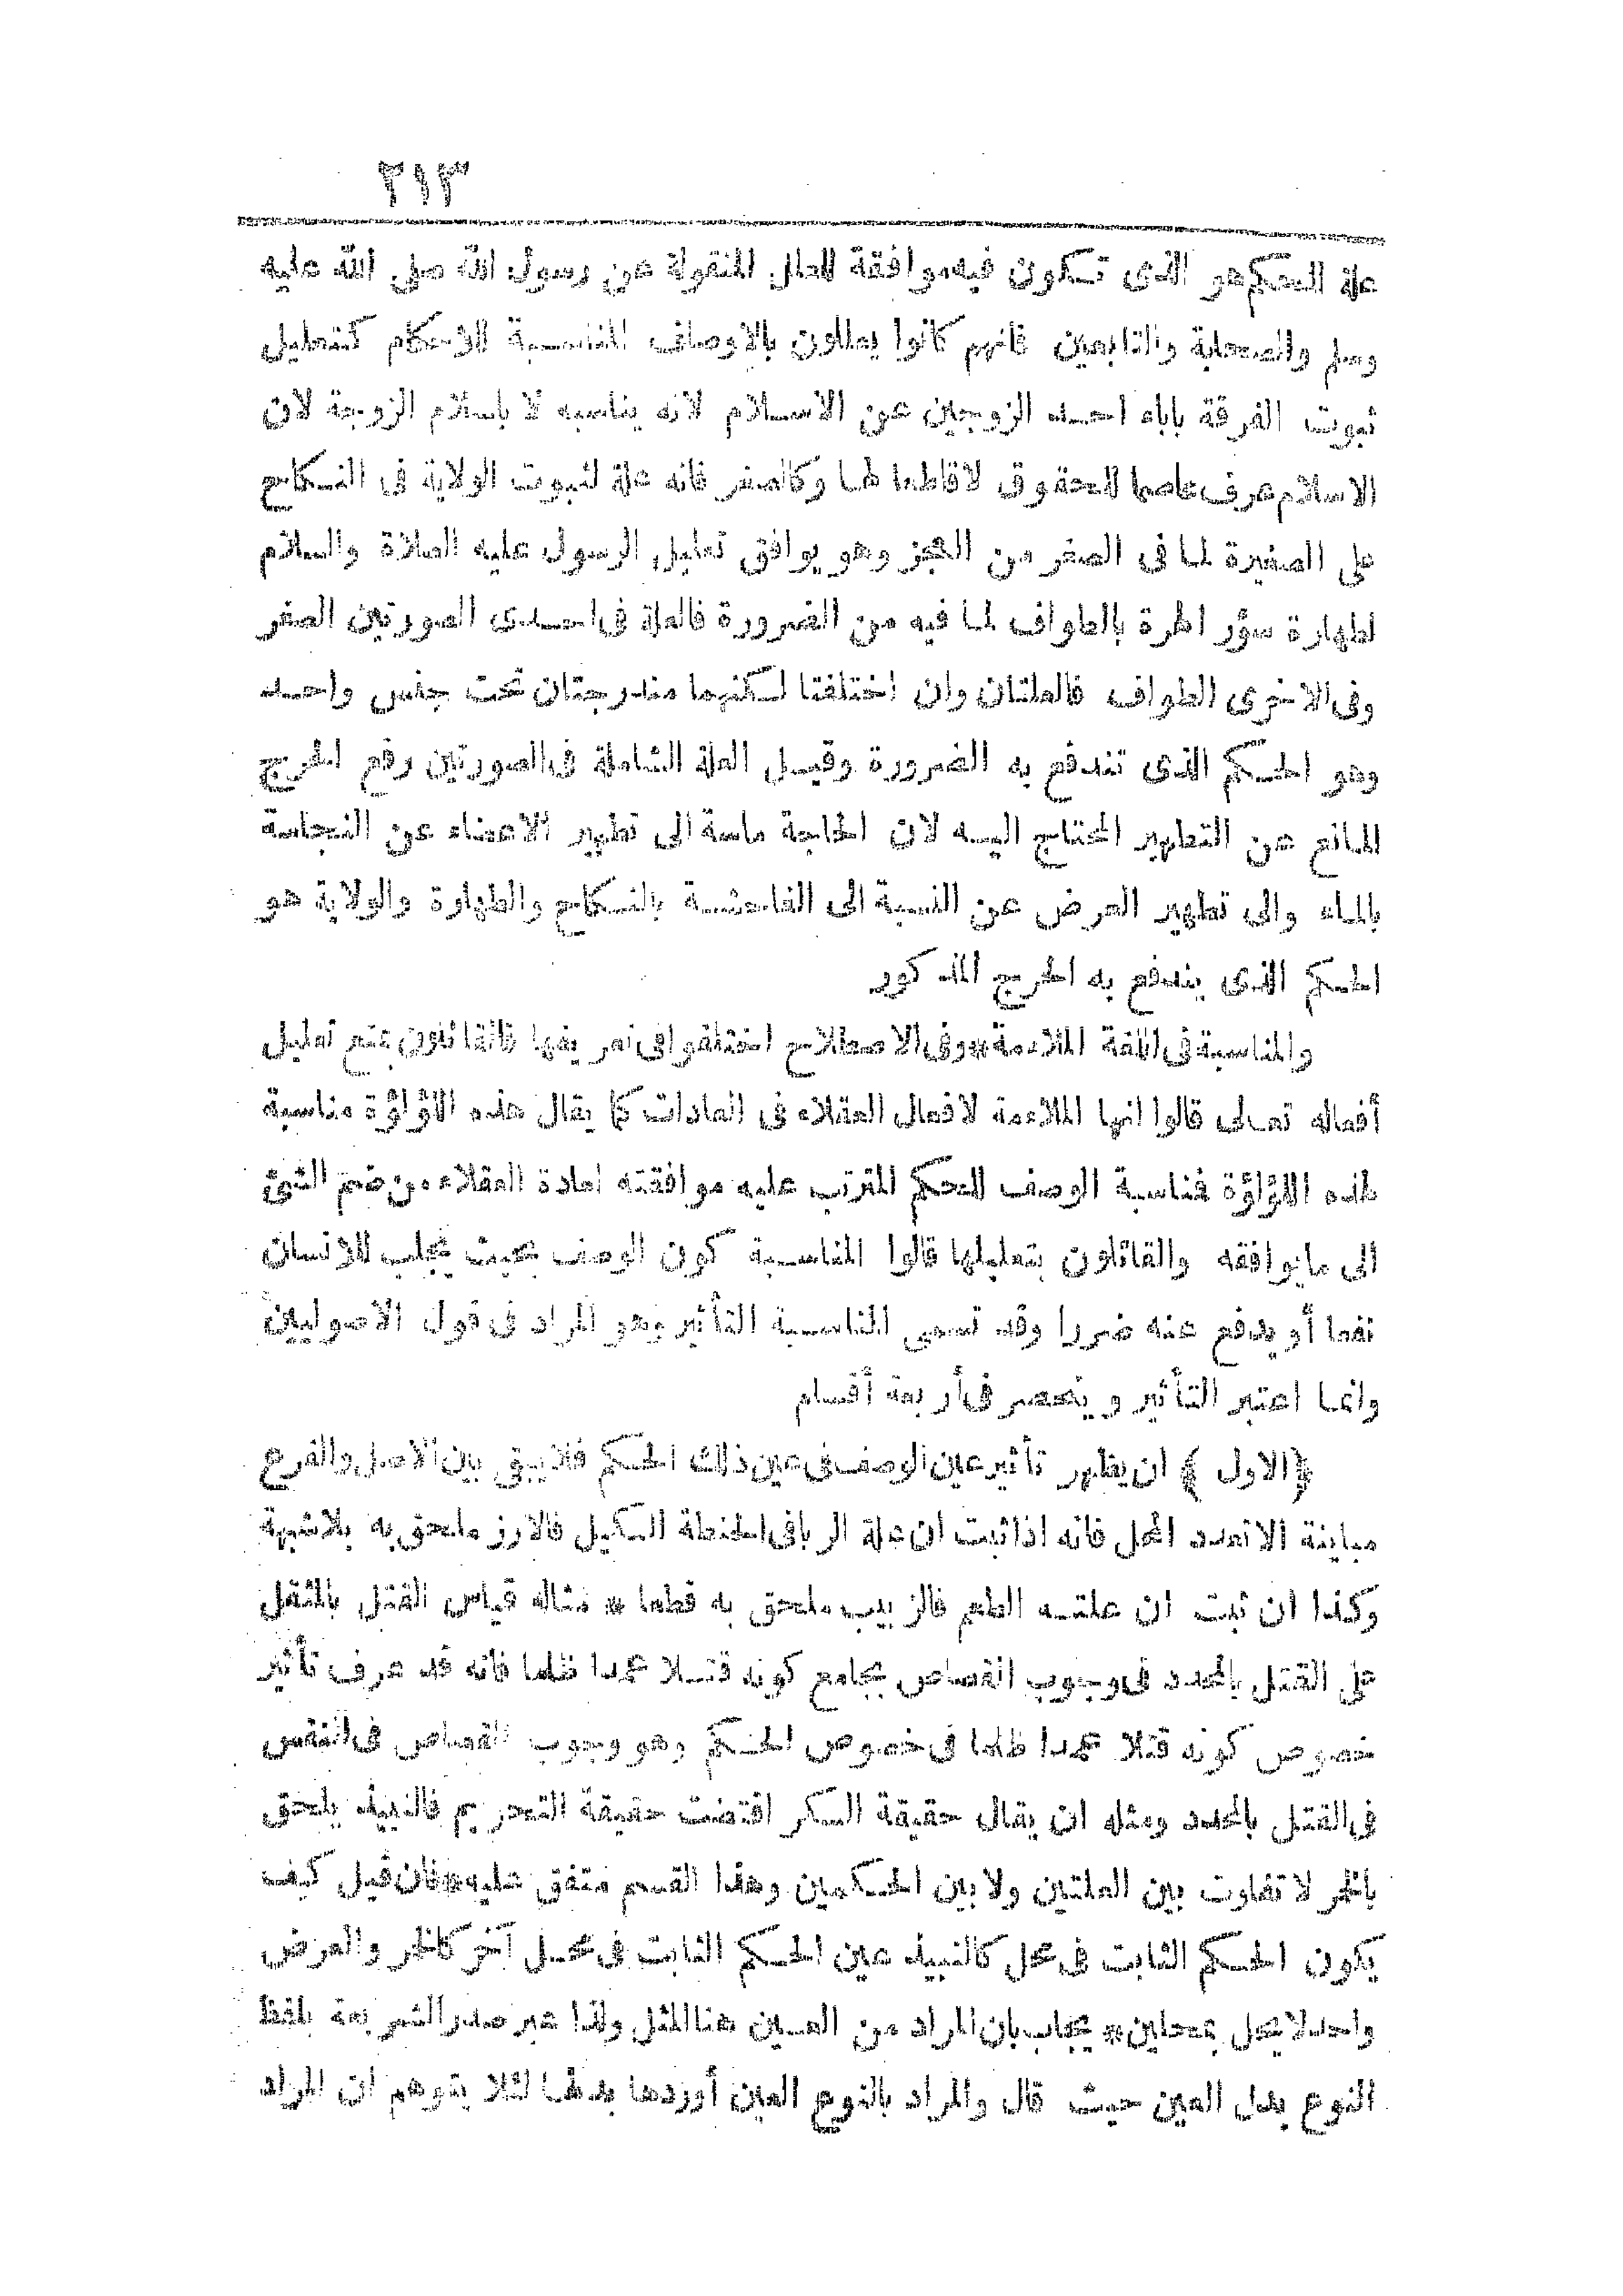 ٢١٣
علة للحكم هو الذى تكون فيه موافقة للعلل المنقولة عن رسول الله صلى الله عليه
وسلم والصحابة والتابعين فانهم كانوا يعللون بالاوصاف المناسبة للاحكام كتعليل
ثبوت الفرقة باباء احد الزوجين عن الاسلام لانه يناسبه لا باسلام الزوجة لان
الاسلام عرف عاصما للحقوق لا قاطعا لها وكالصغر فانه علة لثبوت الولاية فى النكاح
على الصغيرة لما فى الصغر من العجز وهو يوافق تعليل الرسول عليه الصلاة والسلام
لطهارة سؤر الهرة بالطواف لما فيه من الضرورة فالعلة فى احدى الصورتين الصغر
وفى الاخرى الطواف فالعلتان وان اختلفتا لكنهما مندرجتان تحت جنس واحد
وهو الحكم الذى تندفع به الضرورة وقيل العلة الشاملة فى الصورتين رفع الحرج
المانع عن التطهير المحتاج اليه لان الحاجة ماسة الى تطهير الاعضاء عن النجاسة
بالماء والى تطهير العرض عن النسبة الى الفاحشة بالنكاح والطهارة والولاية هو
الحكم الذى يندفع به الحرج المذكور
والمناسبة فى اللغة الملاءمة * وفى الاصطلاح اختلفوا فى تعريفها فالقائلون بمنع تعليل
أفعاله تعالى قالوا انها الملاءمة لافعال العقلاء فى العادات كما يقال هذه اللؤلؤة مناسبة
لهذه اللؤلؤة فمناسبة الوصف للحكم المترتب عليه موافقته لعادة العقلاء من ضم الشئ
الى ما يوافقه والقائلون بتعليلها قالوا المناسبة كون الوصف بحيث يجلب للانسان
نفعا أو يدفع عنه ضررا وقد تسمى المناسبة التأثير وهو المراد فى قول الاصوليين
وانما اعتبر التأثير وينحصر فى أربعة أقسام
﴿الاول﴾ ان يظهر تأثير عين الوصف فى عين ذلك الحكم فلا يبقى بين الاصل والفرع
مباينة الا تعدد المحل فانه اذا ثبت ان علة الربا فى الحنطة الكيل فالارز ملحق به بلا شبهة
وكذا ان ثبت ان علته الطعم فالزبيب ملحق به قطعا * مثاله قياس القتل بالمثقل
على القتل بالمحدد فى وجوب القصاص بجامع كونه قتلا عمدا ظلما فانه قد عرف تأثير
خصوص كونه قتلا عمدا ظلما فى خصوص الحكم وهو وجوب القصاص فى النفس
فى القتل بالمحدد ومثله ان يقال حقيقة السكر اقتضت حقيقة التحريم فالنبيذ يلحق
بالخمر لا تفاوت بين العلتين ولا بين الحكمين وهذا القسم متفق عليه * فان قيل كيف
يكون الحكم الثابت فى محل كالنبيذ عين الحكم الثابت فى محل آخر كالخمر والعرض
واحد لا يحل بمحلين * يجاب بان المراد من العين هنا المثل ولذا عبر صدر الشريعة بلفظ
النوع بدل العين حيث قال والمراد بالنوع العين أوردها بدلها لئلا يتوهم ان المراد